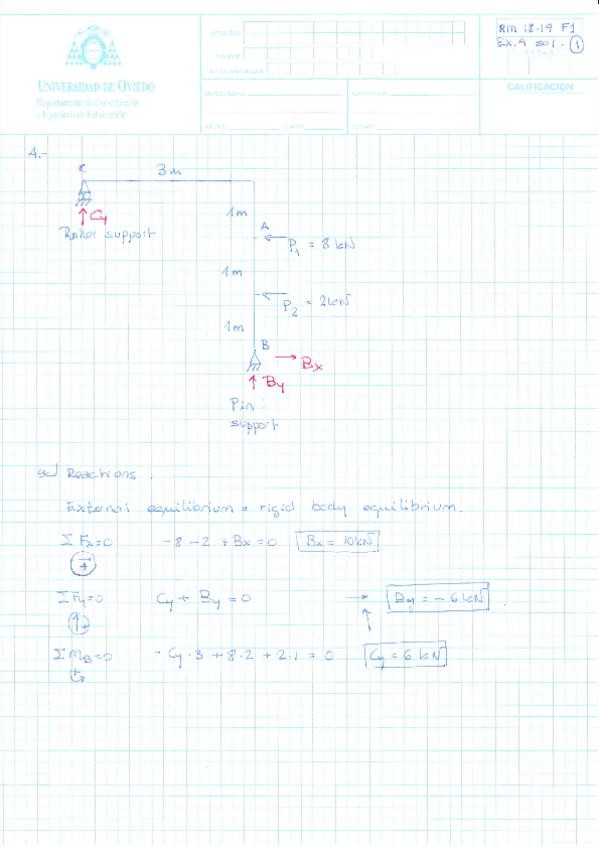 RM 18-19 F1
Ex.4 sol. 1
UNIVERSIDAD DE OVIEDO
Departamento de Construcción
e Ingeniería de Fabricación
CALIFICACIÓN
4.-
C
3m
Cy
Roller support
1m
A
P1 = 8 kN
1m
P2 = 2 kN
1m
B
Bx
By
Pin
support
a) Reactions.
External equilibrium = rigid body equilibrium.
ΣFx=0 -8 -2 +Bx = 0 Bx = 10 kN
+
ΣFy=0 Cy + By = 0 → By = -6 kN
ΣMB=0 -Cy·3 + 8·2 + 2·1 = 0 Cy = 6 kN